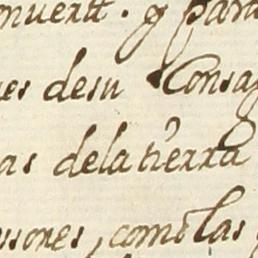 y para
es desu Consag
as dela tierra
ssones, como las